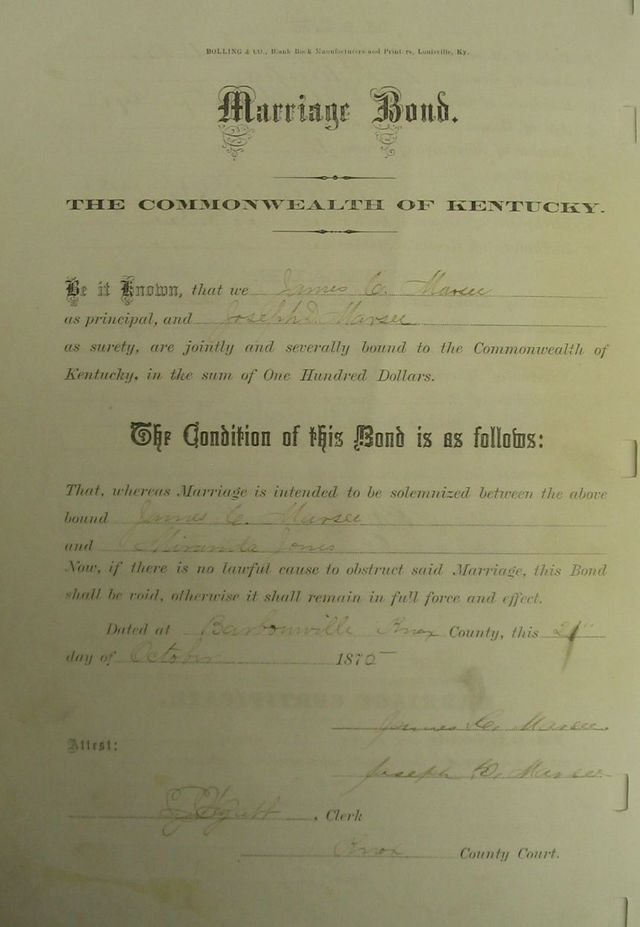 BOLLING & CO., Blank Book Manufacturers and Printers, Louisville, Ky.
Marriage Bond.
THE COMMONWEALTH OF KENTUCKY.
Be it Known, that we James C. Marsee
as principal, and Joseph D. Marsee
as surety, are jointly and severally bound to the Commonwealth of
Kentucky, in the sum of One Hundred Dollars.
The Condition of this Bond is as follows:
That, whereas Marriage is intended to be solemnized between the above
bound James C. Marsee
and Miranda Jones
Now, if there is no lawful cause to obstruct said Marriage, this Bond
shall be void, otherwise it shall remain in full force and effect.
Dated at Barbourville Knox County, this
day of October 1875
James C. Marsee
Attest:
Joseph D. Marsee
, Clerk
Knox County Court.